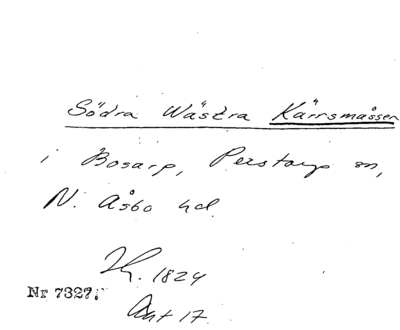 Södra Wästra Kärrsmåssen
i Bosarp, Perstorp sn,
N. Åsbo hd.
H. 1824
Nr 7327.
Akt 17